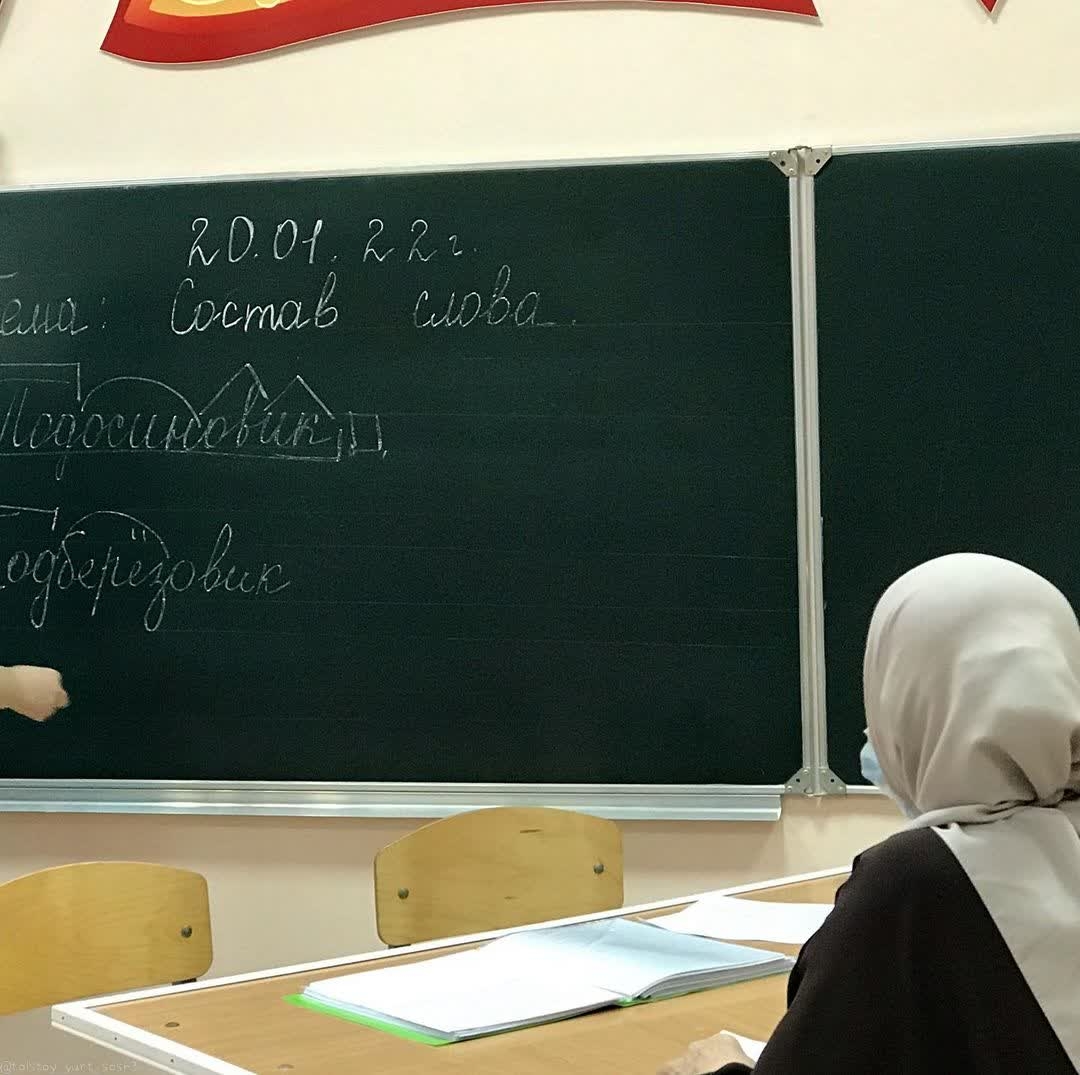 20.01.22г.
ема: Состав слова.
Подосиновик
одберёзовик
@tolstoy_yurt_sosh2